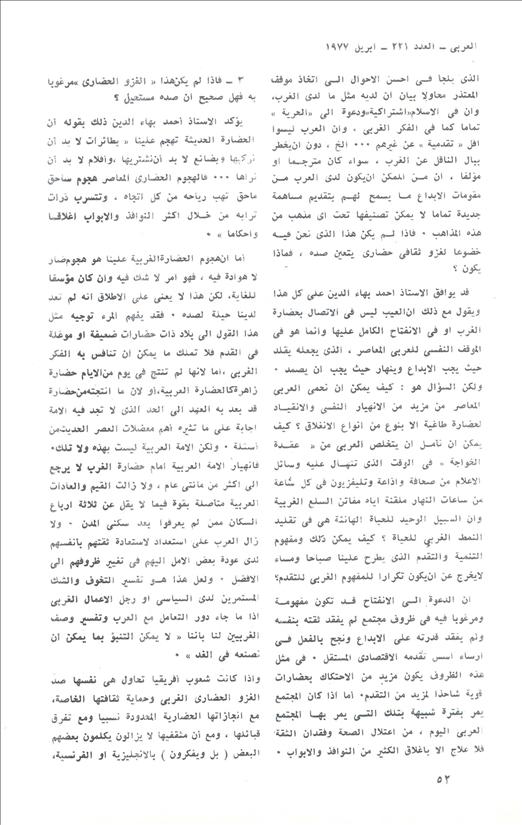 العربي ــ العدد ٢٢١ ــ ابريل ١٩٧٧
الذى يلجأ فى احسن الاحوال الى اتخاذ موقف
المعتذر محاولا بيان ان لديه مثل ما لدى الغرب،
وان فى الاسلام«اشتراكية»ودعوة الى «الحرية »
تماما كما فى الفكر الغربى ، وان العرب ليسوا
اقل « تقدمية » عن غيرهم ••• الخ ، دون ان يخطر
ببال الناقل عن الغرب ، سواء كان مترجما او
مؤلفا ، ان من الممكن ان يكون لدى العرب من
مقومات الابداع ما يسمح لهم بتقديم مساهمة
جديدة تماما لا يمكن تصنيفها تحت اى مذهب من
هذه المذاهب • فاذا لم يكن هذا الذى نحن فيه
خضوعا لغزو ثقافى حضارى يتعين صده ، فماذا
يكون ؟
قد يوافق الاستاذ احمد بهاء الدين على كل هذا
ويقول مع ذلك ان العيب ليس فى الاتصال بحضارة
الغرب او فى الانفتاح الكامل عليها وانما هو فى
الموقف النفسى للعربى المعاصر ، الذى يجعله يقلد
حيث يجب الابداع وينهار حيث يجب ان يصمد •
ولكن السؤال هو : كيف يمكن ان نحمى العربى
المعاصر من مزيد من الانهيار النفسى والانقياد
لحضارة طاغية الا بنوع من انواع الانغلاق ؟ كيف
يمكن ان نأمل ان يتخلص العربى من « عقدة
الخواجة » فى الوقت الذى تنهال عليه وسائل
الاعلام من صحافة واذاعة وتليفزيون فى كل ساعة
من ساعات النهار ملقنة اياه مفاتن السلع الغربية
وان السبيل الوحيد للحياة الهانئة هى فى تقليد
النمط الغربى للحياة ؟ كيف يمكن ذلك ومفهوم
التنمية والتقدم الذى يطرح علينا صباحا ومساء
لايخرج عن ان يكون تكرارا للمفهوم الغربى للتقدم؟
ان الدعوة الى الانفتاح قد تكون مفهومة
ومرغوبا فيه فى ظروف مجتمع لم يفقد ثقته بنفسه
ولم يفقد قدرته على الابداع ونجح بالفعل فى
ارساء اسس تقدمه الاقتصادى المستقل • فى مثل
هذه الظروف يكون مزيد من الاحتكاك بحضارات
قوية شاحذا لمزيد من التقدم• اما اذا كان المجتمع
يمر بفترة شبيهة بتلك التى يمر بها المجتمع
العربى اليوم ، من اعتلال الصحة وفقدان الثقة
فلا علاج الا باغلاق الكثير من النوافذ والابواب •
٣ ــ فاذا لم يكن هذا « الغزو الحضارى » مرغوبا
به فهل صحيح ان صده مستحيل ؟
يؤكد الاستاذ احمد بهاء الدين ذلك بقوله أن
الحضارة الحديثة تهجم علينا « بطائرات لا بد أن
نركبها وبضائع لا بد أن نشتريها ،وأفلام لا بد أن
نراها ••• فالهجوم الحضارى المعاصر هجوم ساحق
ماحق تهب رياحه من كل اتجاه ، وتتسرب ذرات
ترابه من خلال اكثر النوافذ والابواب اغلاقا
واحكاما »
أما ان هجوم الحضارة الغربية علينا هو هجوم ضار
لا هوادة فيه ، فهو امر لا شك فيه وان كان مؤسفا
للغاية، لكن هذا لا يعنى على الاطلاق انه لم تعد
لدينا حيلة لصده • فقد يفهم المرء توجيه مثل
هذا القول الى بلاد ذات حضارات ضعيفة او موغلة
فى القدم فلا تملك ما يمكن ان تنافس به الفكر
الغربى ،اما لانها لم تنتج فى يوم من الايام حضارة
زاهرة كالحضارة العربية،أو لان ما انتجته من حضارة
قد بعد به العهد الى الحد الذى لا تجد فيه الامة
اجابة على ما تثيره أهم معضلات العصر الحديث من
أسئلة • ولكن الامة العربية ليست بهذه ولا تلك•
فانهيار الامة العربية امام حضارة الغرب لا يرجع
الى اكثر من مائتى عام ، ولا زالت القيم والعادات
العربية متأصلة بقوة فيما لا يقل عن ثلاثة ارباع
السكان ممن لم يعرفوا بعد سكنى المدن • ولا
زال العرب على استعداد لاستعادة ثقتهم بانفسهم
لدى عودة بعض الامل اليهم فى تغيير ظروفهم الى
الافضل • ولعل هذا هو تفسير التخوف والشك
المستمرين لدى السياسى او رجل الاعمال الغربى
اذا ما جاء دور التعامل مع العرب وتفسير وصف
الغربيين لنا باننا « لا يمكن التنبؤ بما يمكن ان
نصنعه فى الغد » •
واذا كانت شعوب أفريقيا تحاول هى نفسها صد
الغزو الحضارى الغربى وحماية ثقافتها الخاصة،
مع انجازاتها الحضارية المحدودة نسبيا ومع تفرق
قبائلها ، ومع أن مثقفيها لا يزالون يكلمون بعضهم
البعض ( بل ويفكرون ) بالانجليزية او الفرنسية،
٥٢